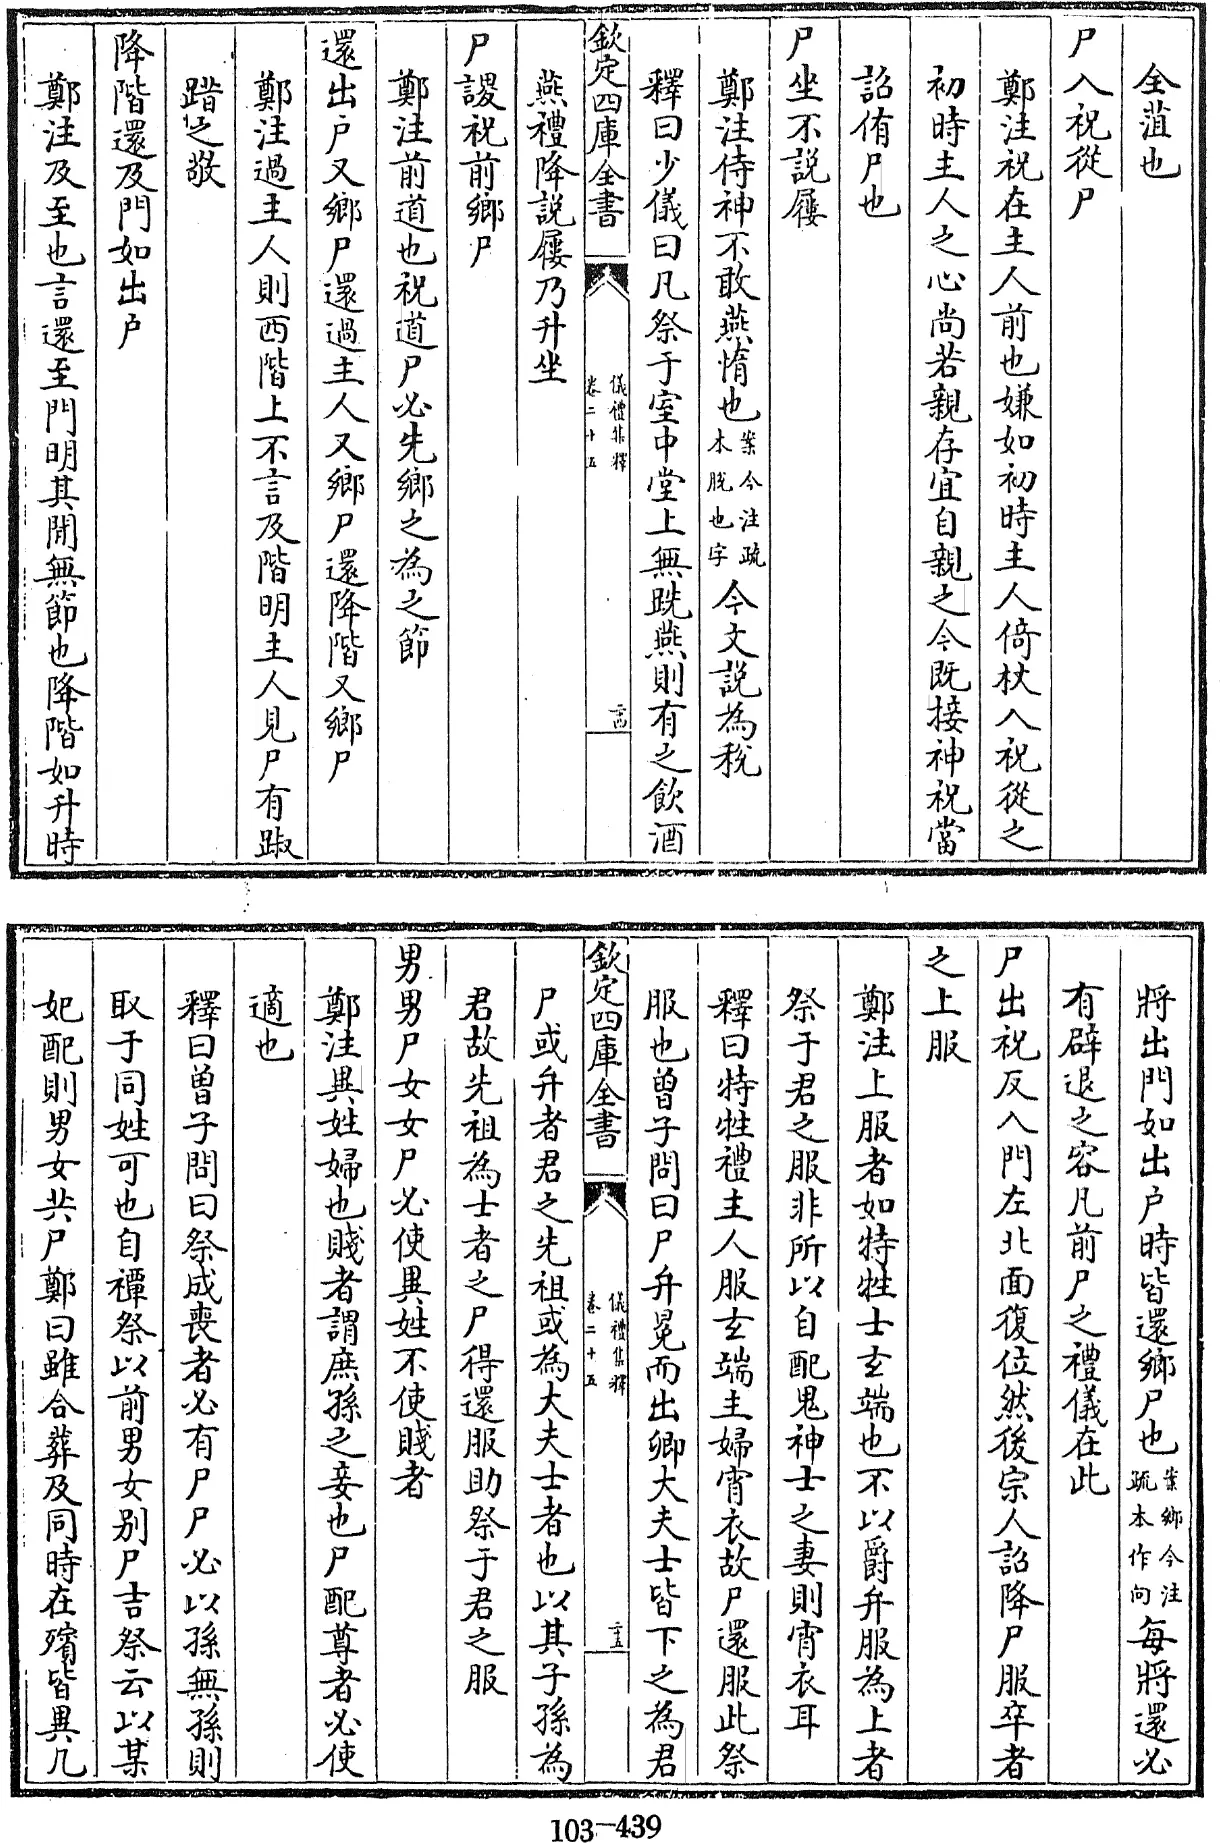 全菹也
尸入祝從尸
鄭注祝在主人前也嫌如初時主人倚杖入祝從之
初時主人之心尚若親存宜自親之今既接神祝當
詔侑尸也
尸坐不説屨
鄭注侍神不敢燕惰也案今注疏本脱也字今文説為稅
釋曰少儀曰凡祭于室中堂上無跣燕則有之飲酒
欽定四庫全書 儀禮集釋 卷二十五 二十四
燕禮降説屨乃升坐
尸謖祝前鄉尸
鄭注前道也祝道尸必先鄉之為之節
還出户又鄉尸還過主人又鄉尸還降階又鄉尸
鄭注過主人則西階上不言及階明主人見尸有踧
踖之敬
降階還及門如出户
鄭注及至也言還至門明其閒無節也降階如升時
將出門如出户時皆還鄉尸也案鄉今注疏本作向每將還必
有辟退之容凡前尸之禮儀在此
尸出祝反入門左北面復位然後宗人詔降尸服卒者
之上服
鄭注上服者如特牲士玄端也不以爵弁服為上者
祭于君之服非所以自配鬼神士之妻則宵衣耳
釋曰特牲禮主人服玄端主婦宵衣故尸還服此祭
服也曾子問曰尸弁冕而出卿大夫士皆下之為君
欽定四庫全書 儀禮集釋 卷二十五 二十五
尸或弁者君之先祖或為大夫士者也以其子孫為
君故先祖為士者之尸得還服助祭于君之服
男男尸女女尸必使異姓不使賤者
鄭注異姓婦也賤者謂庶孫之妾也尸配尊者必使
適也
釋曰曾子問曰祭成喪者必有尸尸必以孫無孫則
取于同姓可也自禫祭以前男女别尸吉祭云以某
妃配則男女共尸鄭曰雖合葬及同時在殯皆異几
103-439